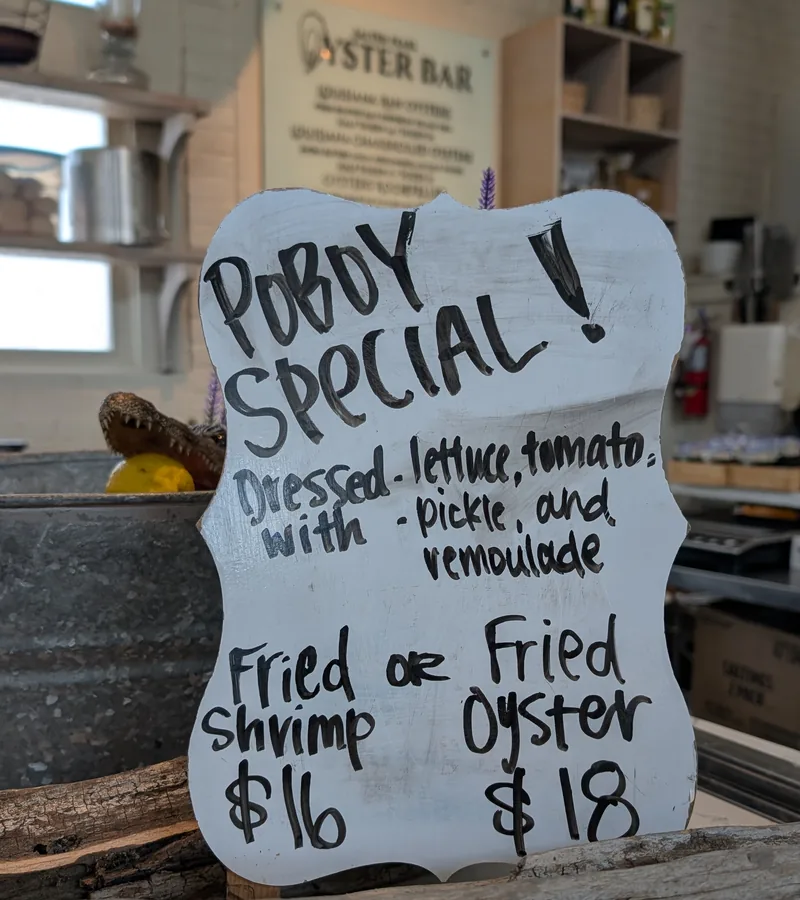 OYSTER BAR
POBOY
SPECIAL!
Dressed - lettuce, tomato,
with - pickle, and
remoulade
Fried or Fried
Shrimp Oyster
$16 $18